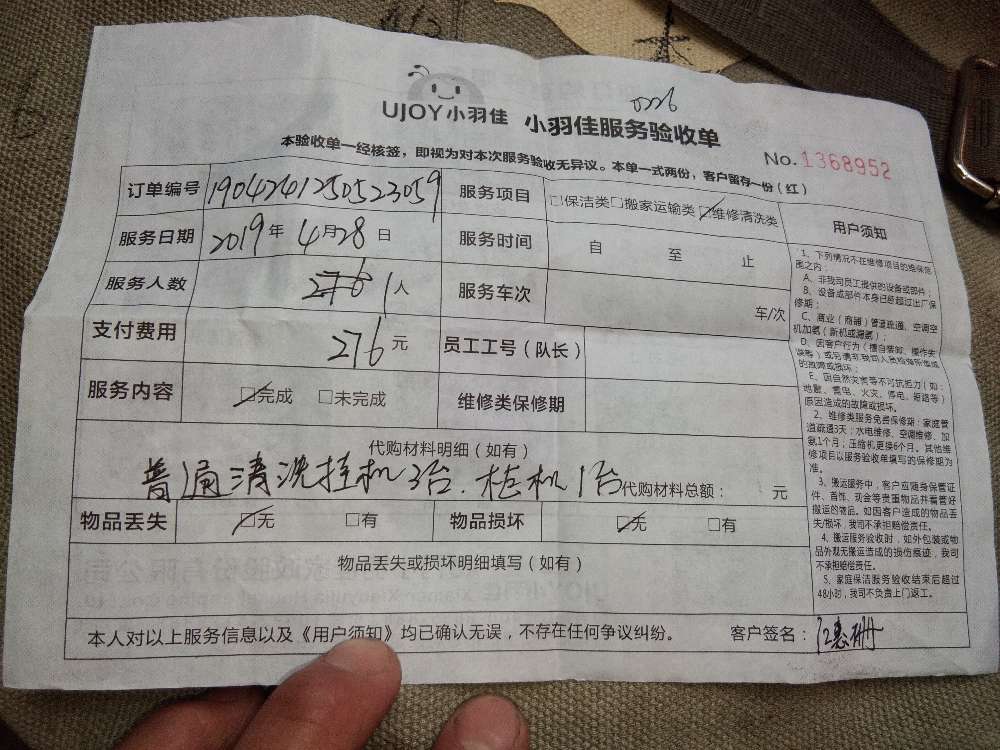 0226
UJOY小羽佳 小羽佳服务验收单
No.1368952
本验收单一经核签，即视为对本次服务验收无异议。本单一式两份，客户留存一份（红）
订单编号 190424125052305９ 服务项目 □保洁类□搬家运输类☑维修清洗类
服务日期 2019年4月28日 服务时间 自 至 止
服务人数 1人 服务车次 车/次
支付费用 276元 员工工号（队长）
服务内容 ☑完成 □未完成 维修类保修期
代购材料明细（如有）
普通清洗挂机3台.柜机1台 代购材料总额： 元
物品丢失 ☑无 □有 物品损坏 ☑无 □有
物品丢失或损坏明细填写（如有）
本人对以上服务信息以及《用户须知》均已确认无误，不存在任何争议纠纷。 客户签名：
用户须知
1、下列情况不在维修项目的维保范
围之内：
A、非我司员工提供的设备或部件；
B、设备或部件本身已经超过出厂保
修期；
C、商业（商器）管道疏通、空调空
机加氨（新机或漏氨）；
D、因客户行为（擅自装卸、操作失
误等）
的故障或损坏；
E、因自然灾害等不可抗拒力（如：
地震、雷电、火灾、停电、短路等）
原因造成的故障或损坏。
2、维修类服务免费保修期：家庭管
道疏通3天；水电维修、空调维修、加
氨1个月；压缩机更换6个月。其他维
修项目以服务验收单填写的保修期为
准。
3、搬运服务中，客户应随身保管证
件、首饰、现金等贵重物品并看管好
搬运的物品。如因客户造成的物品丢
失/损坏，我司不承担赔偿责任。
4、搬运服务验收时，如外包装或物
品外观无搬运造成的损伤痕迹，我司
不承担赔偿责任。
5、家庭保洁服务验收结束后超过
48小时，我司不负责上门返工。